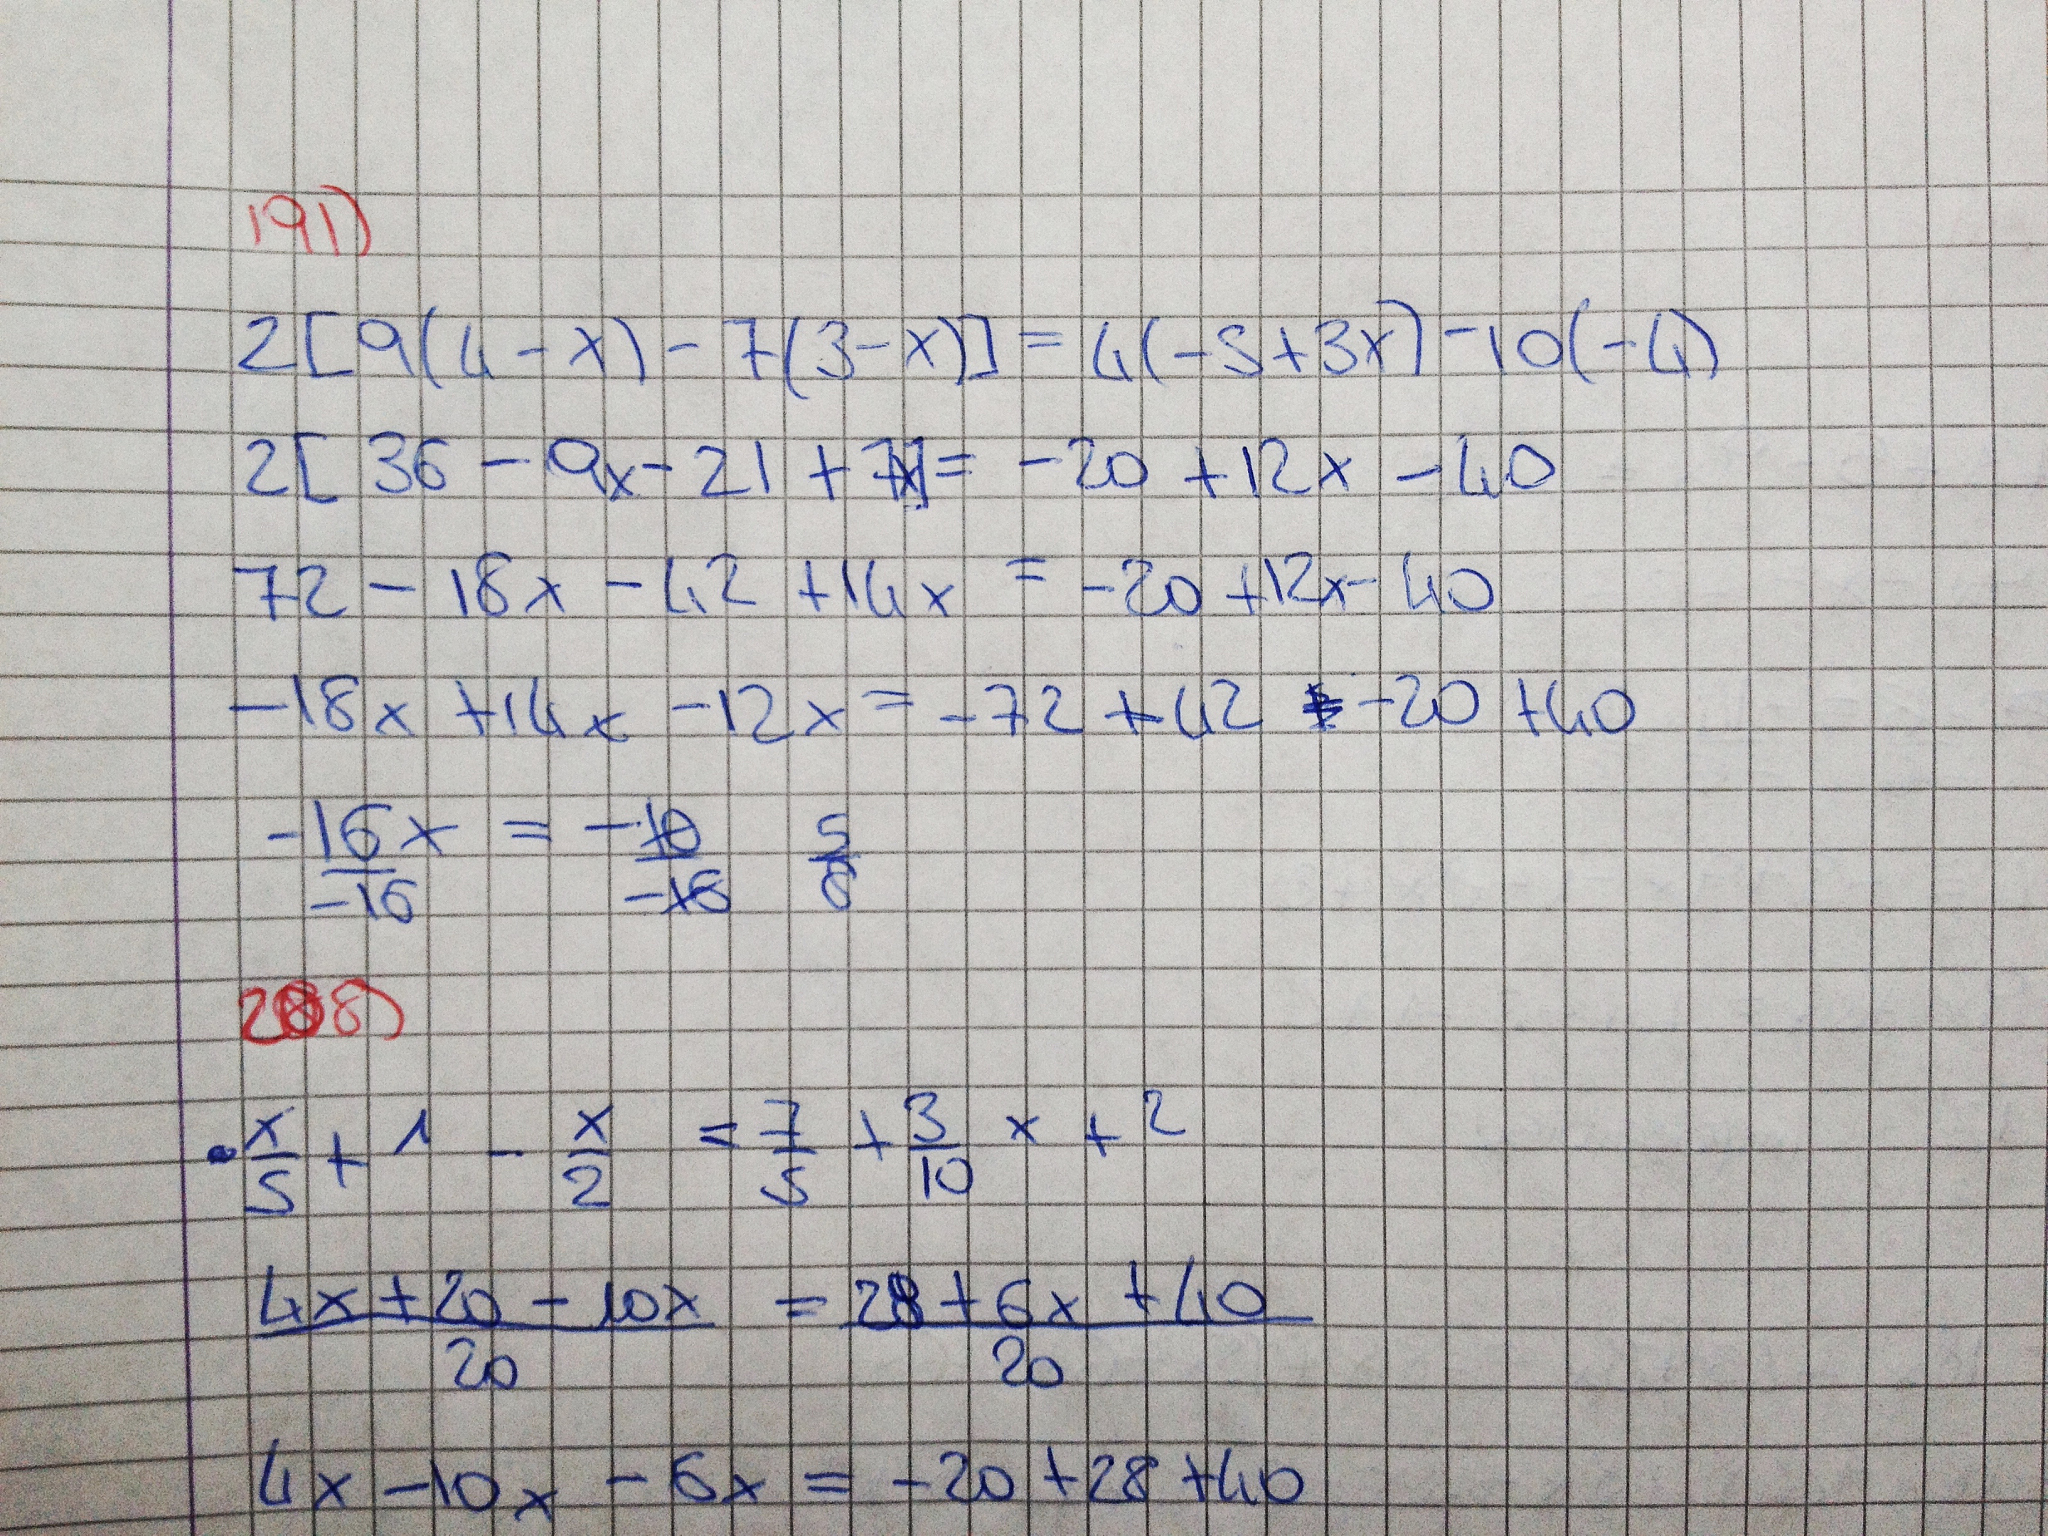 191)
2[9(4-x)-7(3-x)]=4(-5+3x)-10(-4)
2[36-9x-21+7x]=-20+12x-40
72-18x-42+14x=-20+12x-40
-18x+14x-12x=-72+42-20+40
-16x/-16=-10/-16 5/8
288)
x/5+1-x/2=7/5+3/10 x+2
4x+20-10x/20=28+6x+40/20
4x-10x-6x=-20+28+40